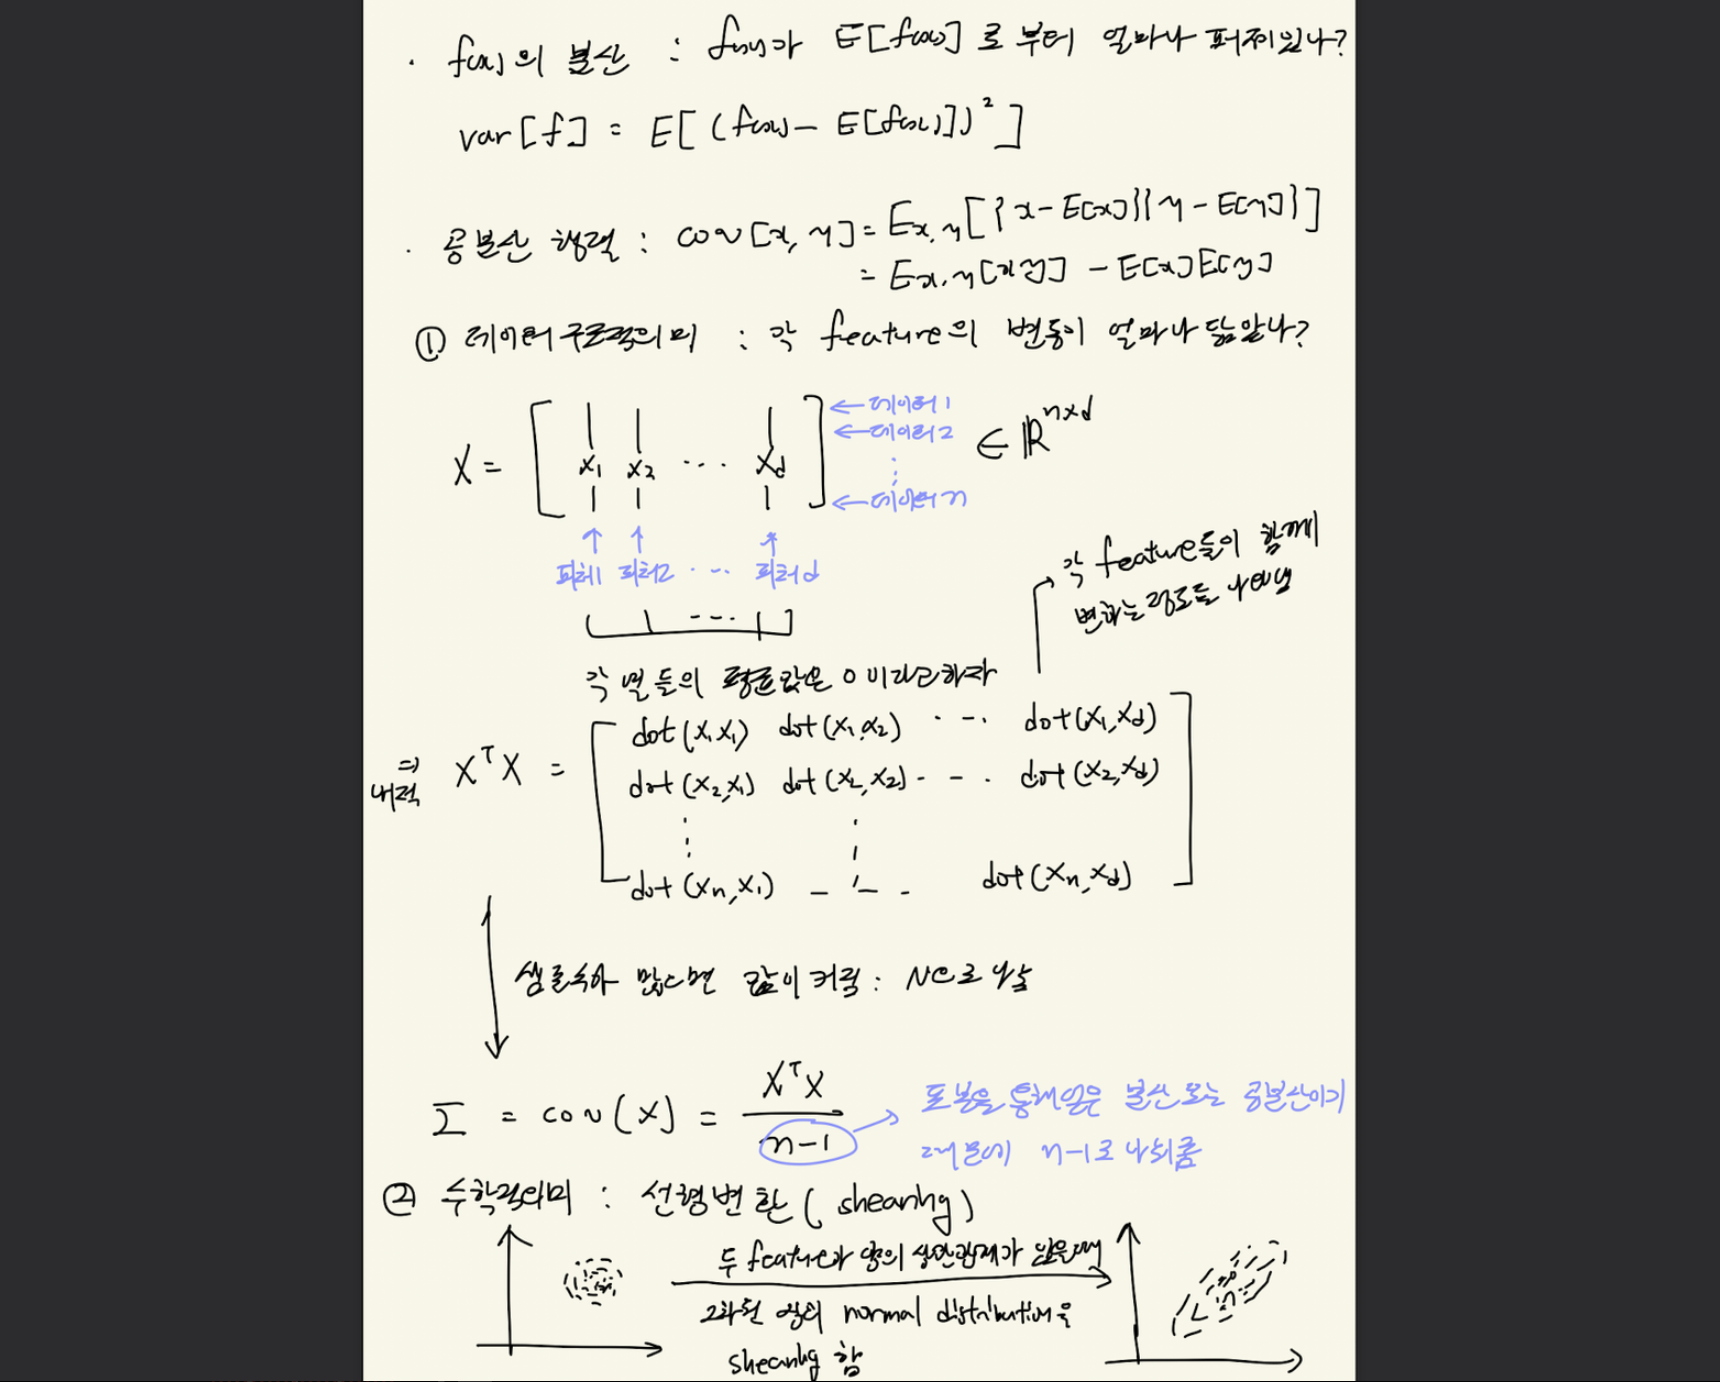 · f(x)의 분산 : f(x)가 E[f(x)]로부터 얼마나 퍼져있나?
var[f] = E[(f(x) - E[f(x)])²]
· 공분산 행렬 : cov[x, y] = E_{x,y}[{x - E[x]}{y - E[y]}]
= E_{x,y}[xy] - E[x]E[y]
① 데이터 구조적 의미 : 각 feature의 변동이 얼마나 닮았나?
X = [x₁ x₂ ... x_d] ∈ ℝ^{n×d}
← 데이터1
← 데이터2
⋮
← 데이터n
↑ ↑ ↑
피처1 피처2 ... 피처d
각 열들의 평균값은 0이라고하자
각 feature들이 함께
변하는 정도를 나타냄
⇒ 내적
XᵀX =
dot(x₁,x₁) dot(x₁,x₂) ... dot(x₁,x_d)
dot(x₂,x₁) dot(x₂,x₂) ... dot(x₂,x_d)
⋮ ⋮
dot(x_n,x₁) ... dot(x_n,x_d)
샘플수가 많으면 값이 커짐 : N으로 나눔
Σ = cov(X) = XᵀX / n-1
→ 표본을 통해 얻은 분산 또는 공분산이기
때문에 n-1로 나눠줌
② 수학적의미 : 선형변환 (shearing)
두 feature가 양의 상관관계가 있을때
2차원 상의 normal distribution을
shearing 함